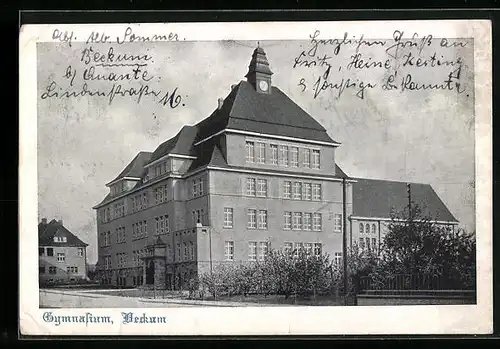 Abs. Alb. Sommer.
Beckum.
b/ Quante.
Lindenstraße 16.
Herzlichen Gruß an
Fritz, Heine,
& sonstige Bekannte
Gymnasium, Beckum